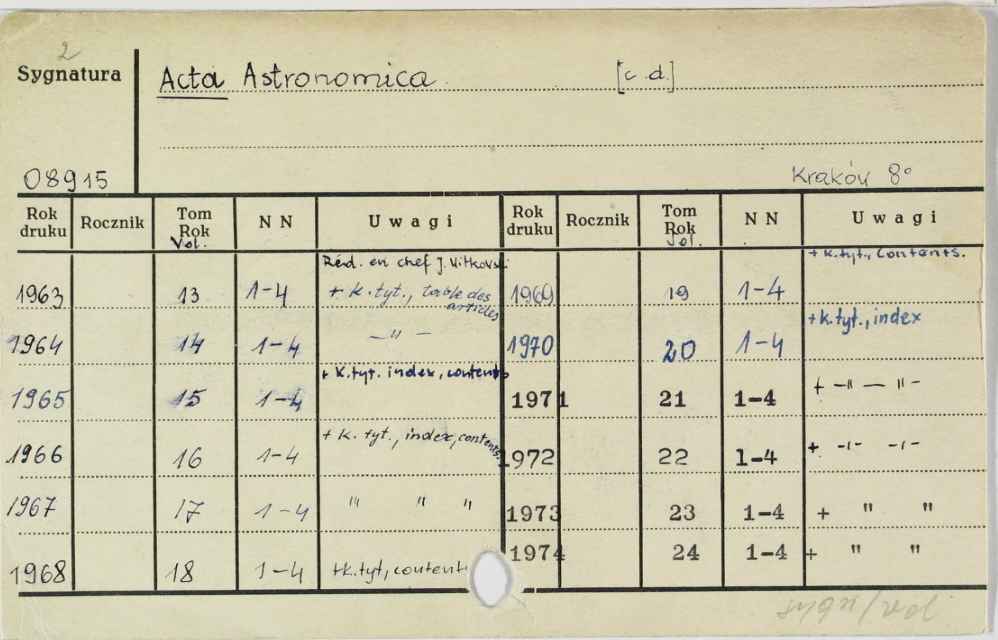 2
Sygnatura Acta Astronomica. [c.d.]
08915 Kraków 8°
Rok druku Rocznik Tom Rok Vol. NN Uwagi Rok druku Rocznik Tom Rok Vol. NN Uwagi
Réd. en chef J. Witkowski + k.tyt., contents.
1963 13 1-4 + k.tyt., table des articles 1969 19 1-4
+ k.tyt., index
1964 14 1-4 — " — 1970 20 1-4
+ k.tyt. index, contents
1965 15 1-4 1971 21 1-4 + — " — " —
+ k. tyt., index, contents.
1966 16 1-4 1972 22 1-4 + -"- -"-
1967 17 1-4 " " " 1973 23 1-4 + " "
1974 24 1-4 + " "
1968 18 1-4 +k.tyt, content